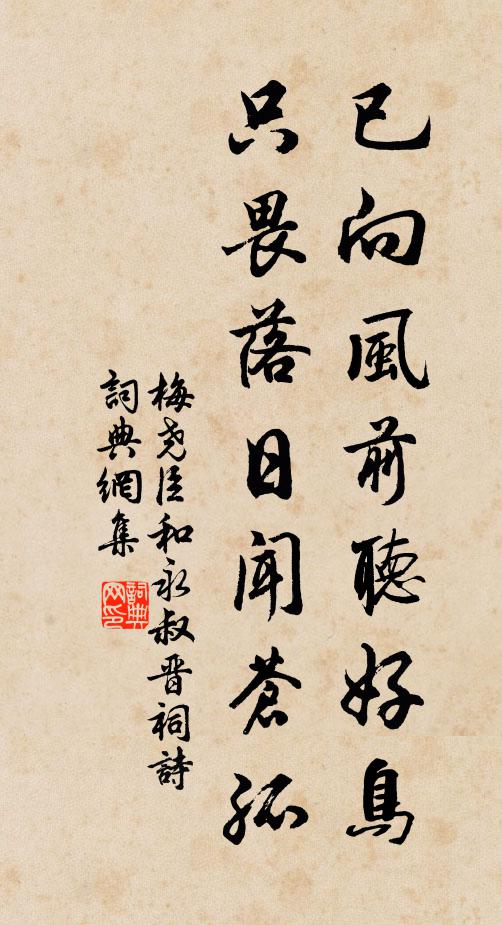 已向風前聽好鳥
只畏落日聞蒼孤
梅堯臣和永叔晋祠詩
詞典網集
詞典网印